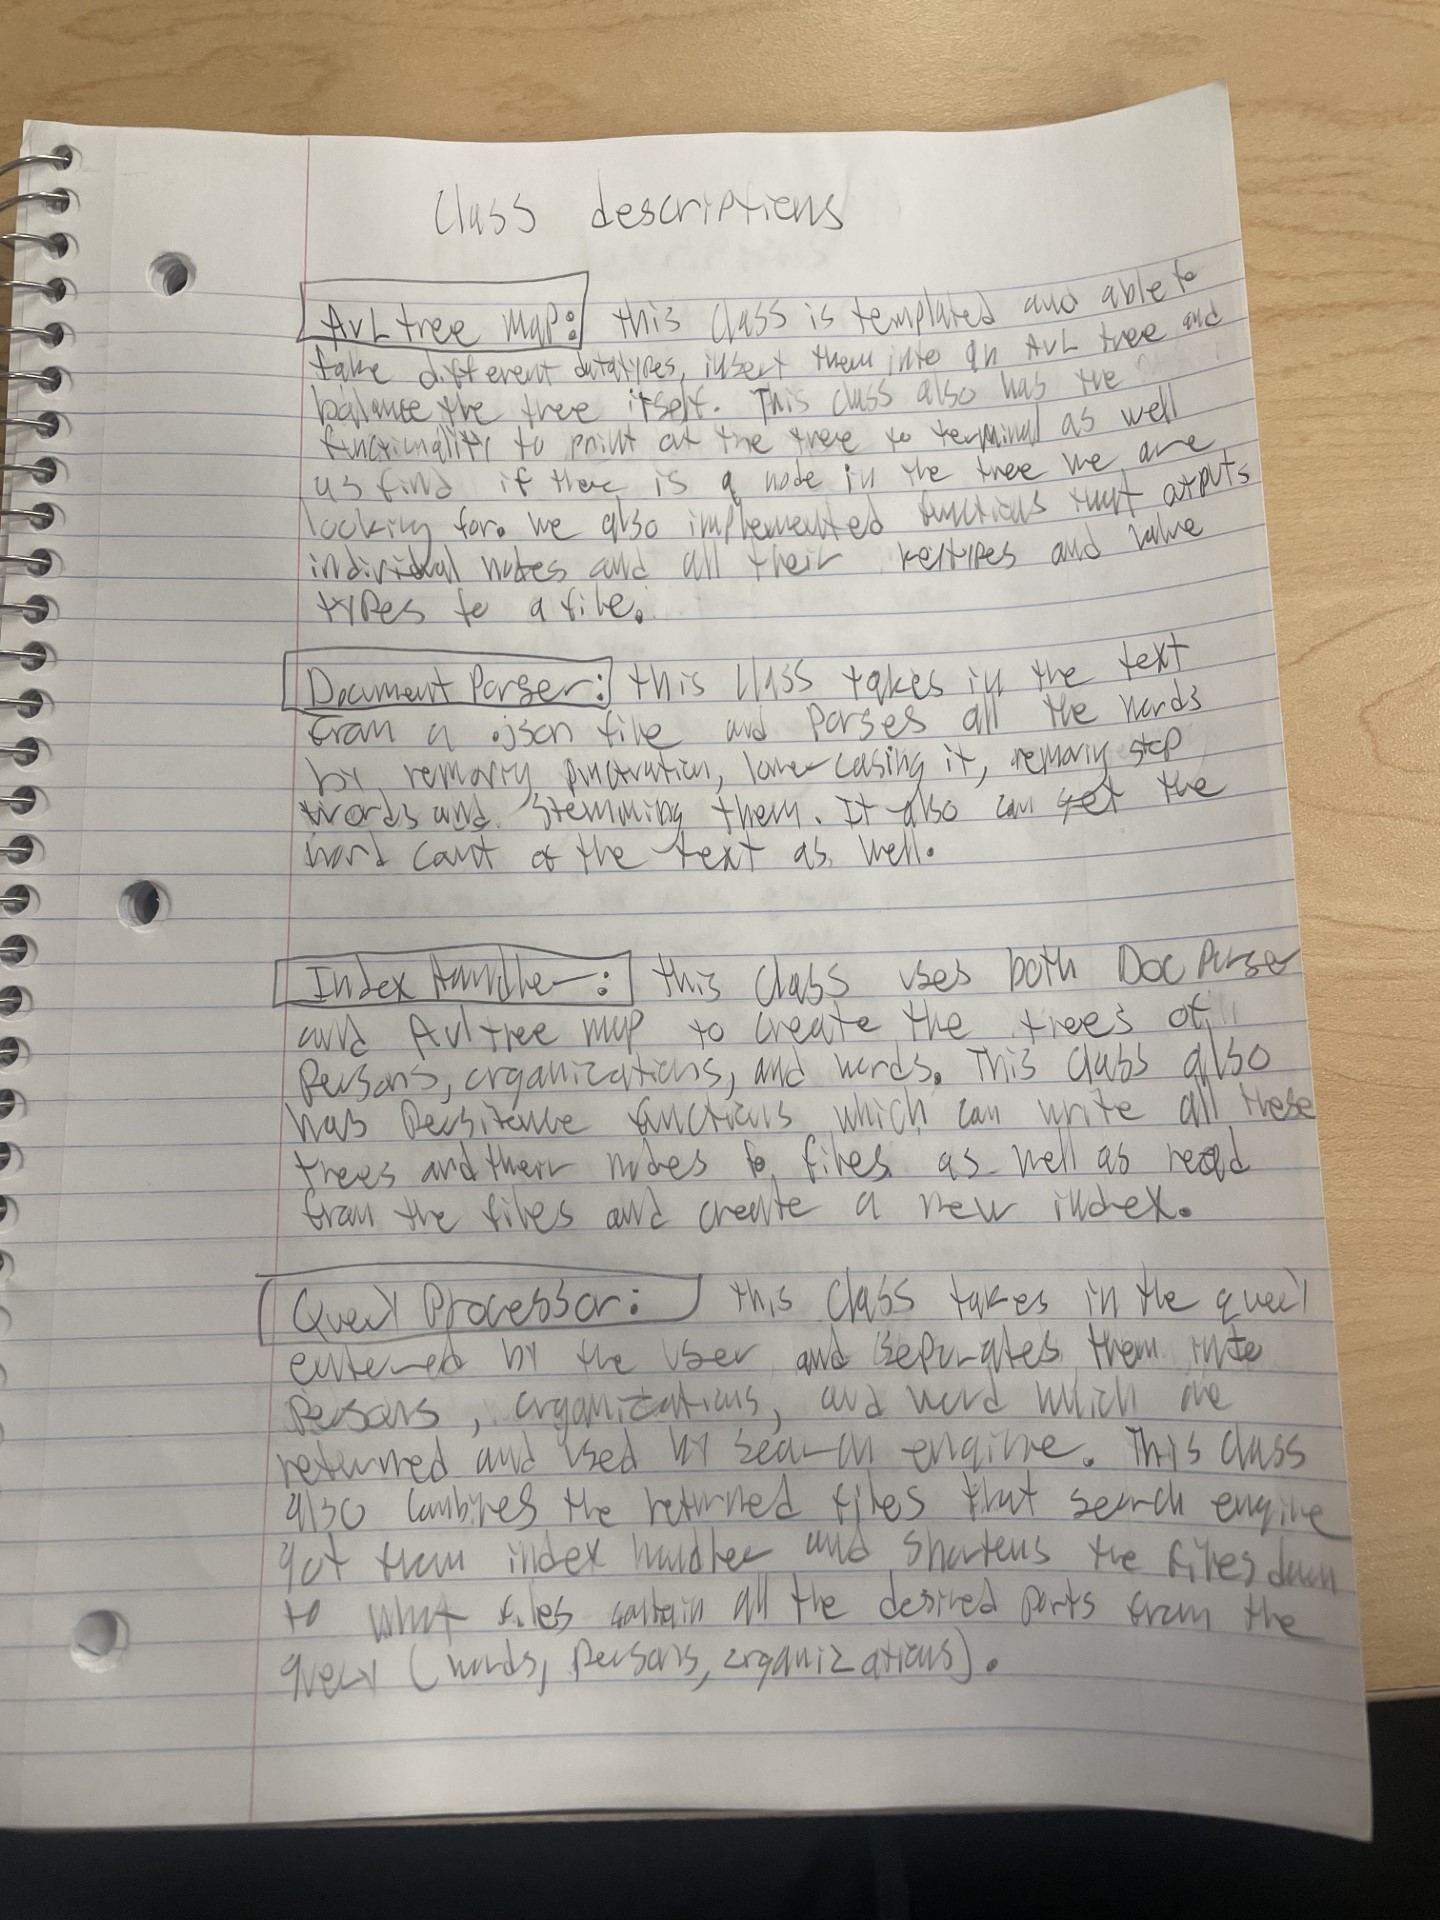 Class descriptions
AVL tree map: this class is templated and able to
take different datatypes, insert them into an AVL tree and
balance the tree itself. This class also has the
functionality to print out the tree to terminal as well
as find if there is a node in the tree we are
looking for. we also implemented functions that outputs
individual nodes and all their keytypes and value
types to a file.
Document Parser: this class takes in the text
from a .json file and parses all the words
by removing punctuation, lower casing it, removing stop
words and stemming them. It also can get the
word count of the text as well.
Index Handler: this class uses both Doc Parser
and Avl tree map to create the trees of
persons, organizations, and words. This class also
has persitence functions which can write all these
trees and their nodes to files as well as read
from the files and create a new index.
Query Processor: this class takes in the query
entered by the user and seperates them into
persons, organizations, and word which are
returned and used by search engine. This class
also combines the returned files that search engine
got from index handler and shortens the files down
to what files contain all the desired parts from the
query (words, persons, organizations).